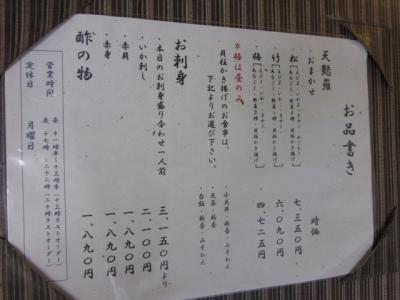 お品書き
天麩羅
おまかせ 時価
松 七、三五〇円
竹 六、〇九〇円
梅 四、七二五円
※梅は昼のみ
貝柱かき揚げのお食事は、
下記よりお選び下さい。
・小天丼・新香・みそわん
・天茶・新香
・白飯・新香・みそわん
お刺身
・本日のお刺身盛り合わせ一人前 三、一五〇円より
・いか刺し 二、一〇〇円
・赤貝 一、八九〇円
・赤身 一、八九〇円
酢の物 一、八九〇円
営業時間 昼 十一時半~十三時半(十三時ラストオーダー)
夜 十七時~二十二時(二十時ラストオーダー)
定休日 月曜日